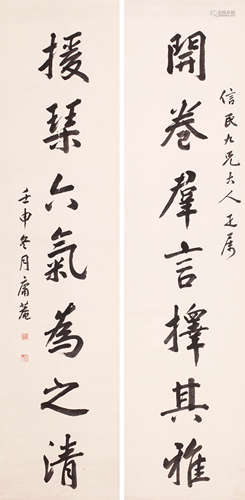 信民九兄大人正属
開卷羣言擇其雅
援琴六氣為之清
壬申冬月庸菴